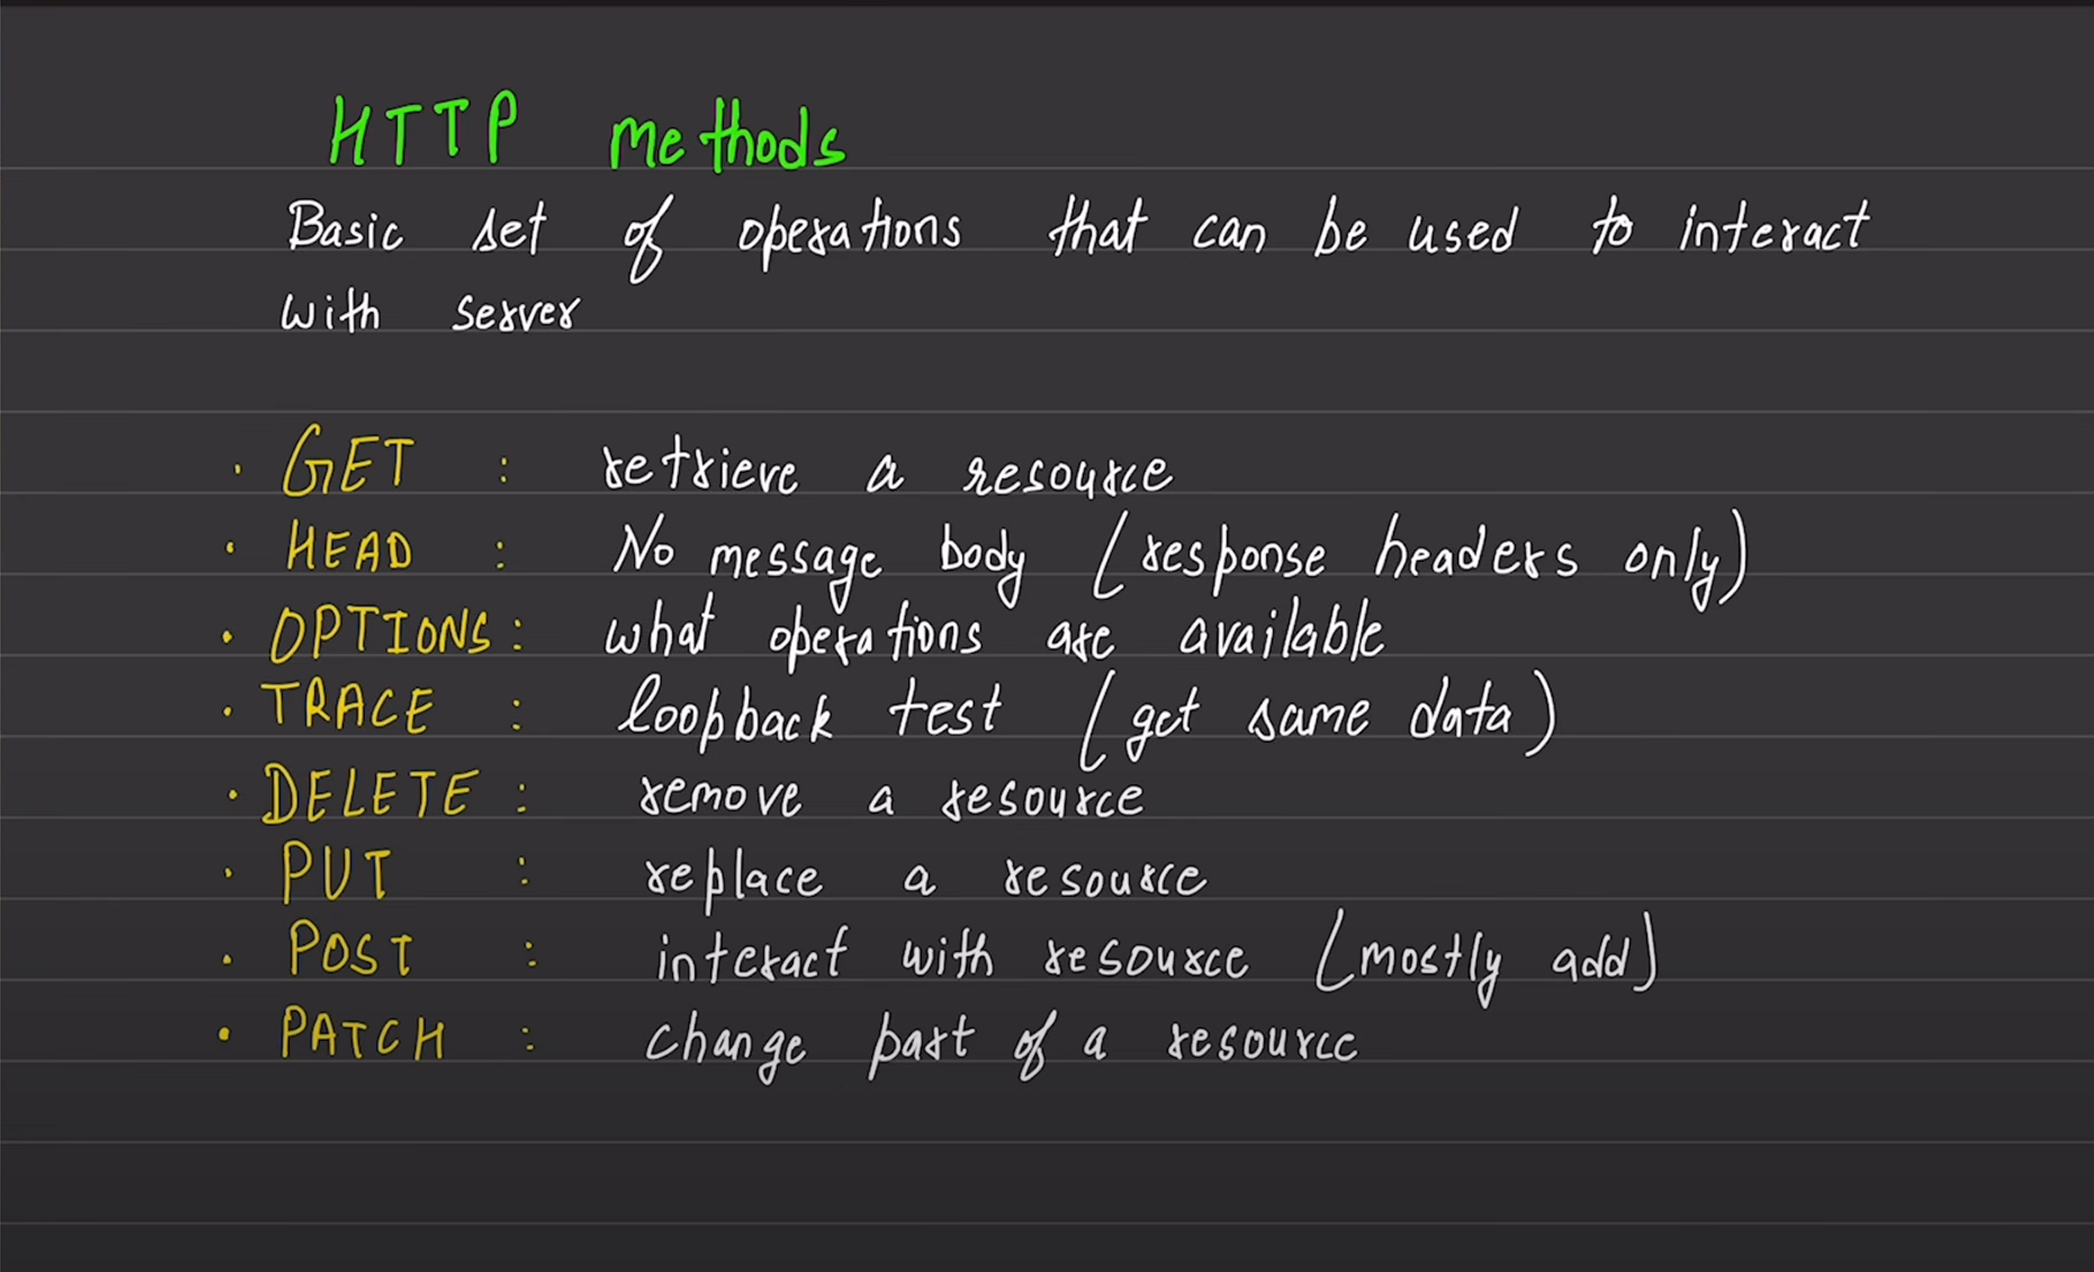 HTTP methods
Basic set of operations that can be used to interact
with server
. GET : retrieve a resource
. HEAD : No message body (response headers only)
. OPTIONS : what operations are available
. TRACE : loopback test (get same data)
. DELETE : remove a resource
. PUT : replace a resource
. POST : interact with resource (mostly add)
. PATCH : change part of a resource